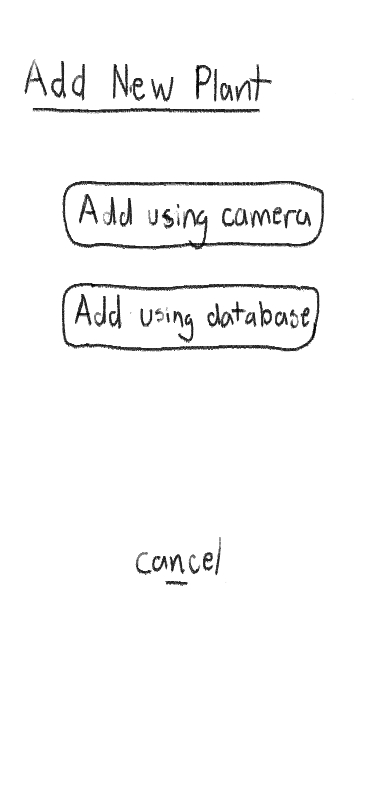 Add New Plant
Add using camera
Add using database
cancel